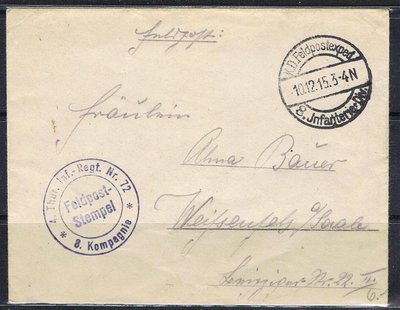 Feldpost:
K.D. Feldpostexped.
10.12.15.3-4N
8. Infanterie-Div.
Fräulein
Alma Bauer
4. Thür. Inf.-Regt. Nr. 72
Feldpost-
Stempel
* 8. Kompagnie *
Weißenfels a/Saale
Leipziger Str. 22 II